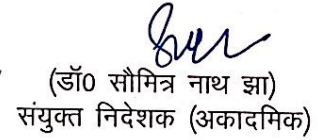 (डॉ0 सौमित्र नाथ झा)
संयुक्त निदेशक (अकादमिक)